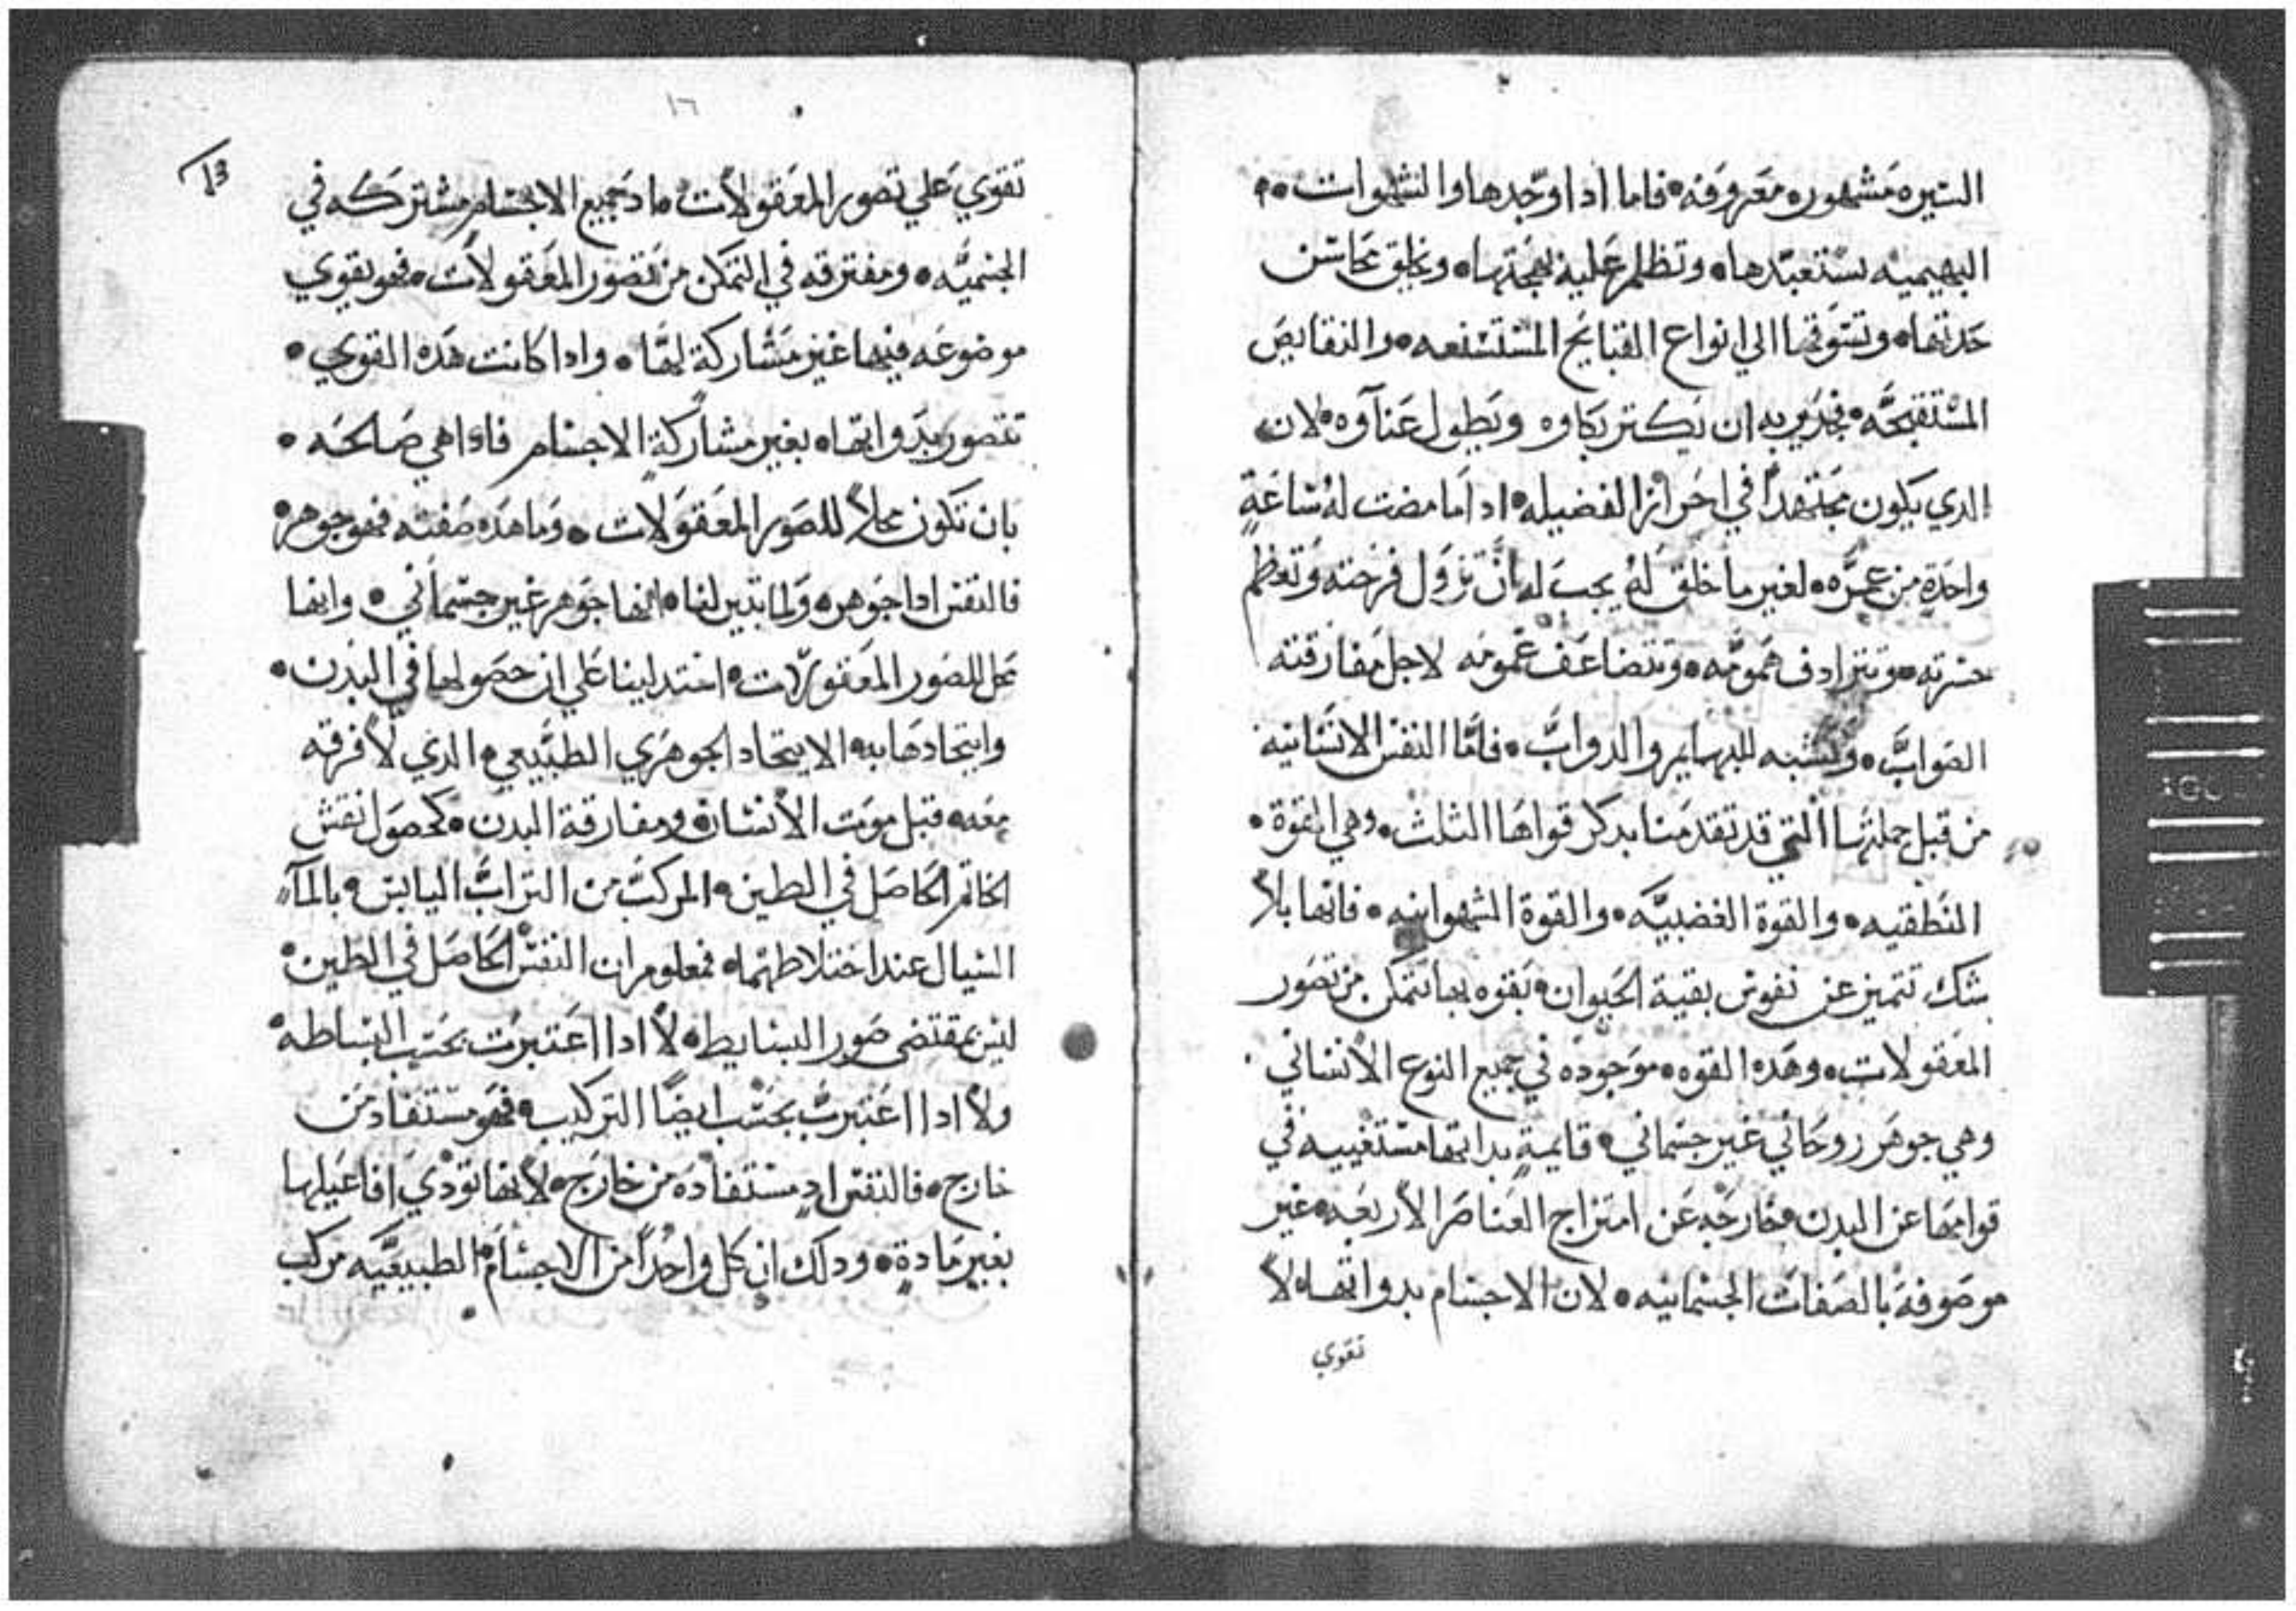 السيره مشهوره معروفه • فاما ادا وجدها والشهوات •
البهيميه تستعبدها • وتظلم عليه بهجتها • وتخلق محاسن
حدتها • وتسوقها الي انواع القبايح المستشنعه • والنقايص
المستقبحَّه • فجدير به ان يكتر بكاوه ويَطول عَنآوه • لان
الدي يكون مجتهداً في احراز الفضيله • ادا ما مضت لهُ سَاعَةٍ
واحَدةٍ من عمرَّه • لغير ما خلق لَهُ يجب له بانَّ تزول فرحته وتعظم
حسرته • وتترادف همومَّه • وتتضاعَف غمومَه لاجل مفارقته
الصَوابَّ • وتشبه للبهايم والدوابَّ • فامَّا النفس الانسَانيه
من قبل جملتها التي قد تقدمَنا بدكر قواهَا الثلث • وهي القوة •
النَطقيه • والقوة الغضبيَّه • والقوة الشهوانيه • فانها بلاً
شَك تتميز عن نفوس بقية الحَيوان • بَقوه بها تتمكن من تصَور
المعَقولات • وهَده القوه • موَجودَه في جميع النوع الانسَاني •
وهي جوهَر روحَاني غير جسماني • قايمةٍ بداتها مستغنييه في
قوامهَا عن البدن • خارجَه عَن امتزاج العَناصَر الاربعَه • غير
موصَوفةَ بالصَفات الجسمانيه • لان الاجسَام بدواتها • لاَ
تقوي
١٦
13
تقوي عَلي تصور المعَقولاَت • ما دَ جميع الاجسَام مشتركَه في
الجسميَّه • ومفترقه في التمَكن من تصور المعَقولاَت • فهو بقوي
موضوعَه فيها غير مَشاركة لهَّا • وادا كانت هَده القوي •
تتصور بدَواتها • بغير مشاركةِ الاجسَام فادا هي صَالحَه •
بان تكون محلاً للصَور المعَقوَلات • وَما هدَه صَفته فهو جوهر •
فالنفس ادا جَوهر • وَلما تبَين لنا • انها جَوهر غير جسْمَاَني • وانها
مَحل للصَور المعَقولات • استدلينا عَلي ان حصَولها في البَدن •
وايتحادهَا به • الايتحاد الجوهَري الطبَّيعي • الدي لاَ فرقه
معَه • قبل موَت الاَنسَان • ومفارقة البدن • كحصَول نقش
الخاتم الحَاصَل في الطين • المركبَّ من التراَبَّ اليابس • بالمآ •
السَيال عند اختلاطهمَا • فمعلوم ان النقش الحَاصَل في الطين •
ليس بمقتضَى صَور البسَايط • لاَ ادا اعَتبرَت بحَسَب البَساطه •
ولاَ ادا اعَتبرتَّ بحَسَب ايضًا التركيب • فهَو مسَتفَاد مَن
خارج • فالنفس ادٍ مستَفادَه من خارَج • لاَنها توَدي اَفاعَيلها
بغير مَادةٍ • ودلَك ان كل واحدُاً من الاجسَامَ الطبيعَيَّه مركب